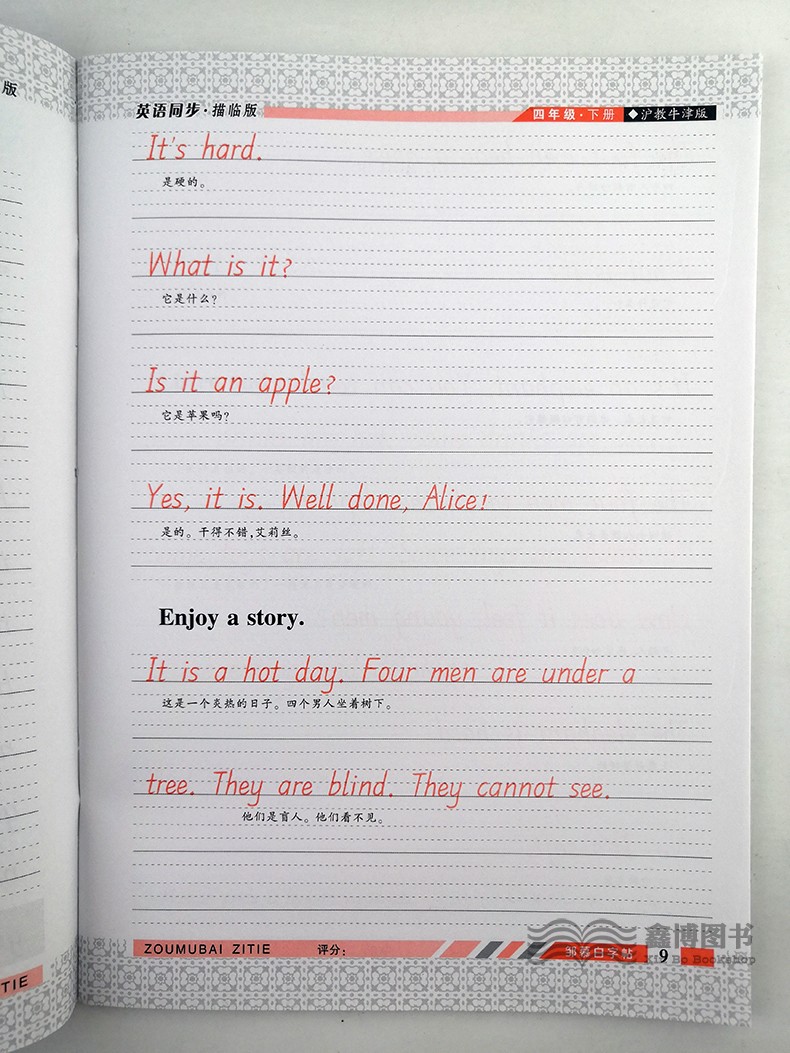 版
英语同步·描临版
四年级·下册 ◆沪教牛津版
It's hard.
是硬的。
What is it?
它是什么?
Is it an apple?
它是苹果吗?
Yes, it is. Well done, Alice!
是的。干得不错,艾莉丝。
Enjoy a story.
It is a hot day. Four men are under a
这是一个炎热的日子。四个男人坐着树下。
tree. They are blind. They cannot see.
他们是盲人。他们看不见。
ZOUMUBAI ZITIE 评分: 邹慕白字帖 9
鑫博图书
Xin Bo Bookshop
TIE